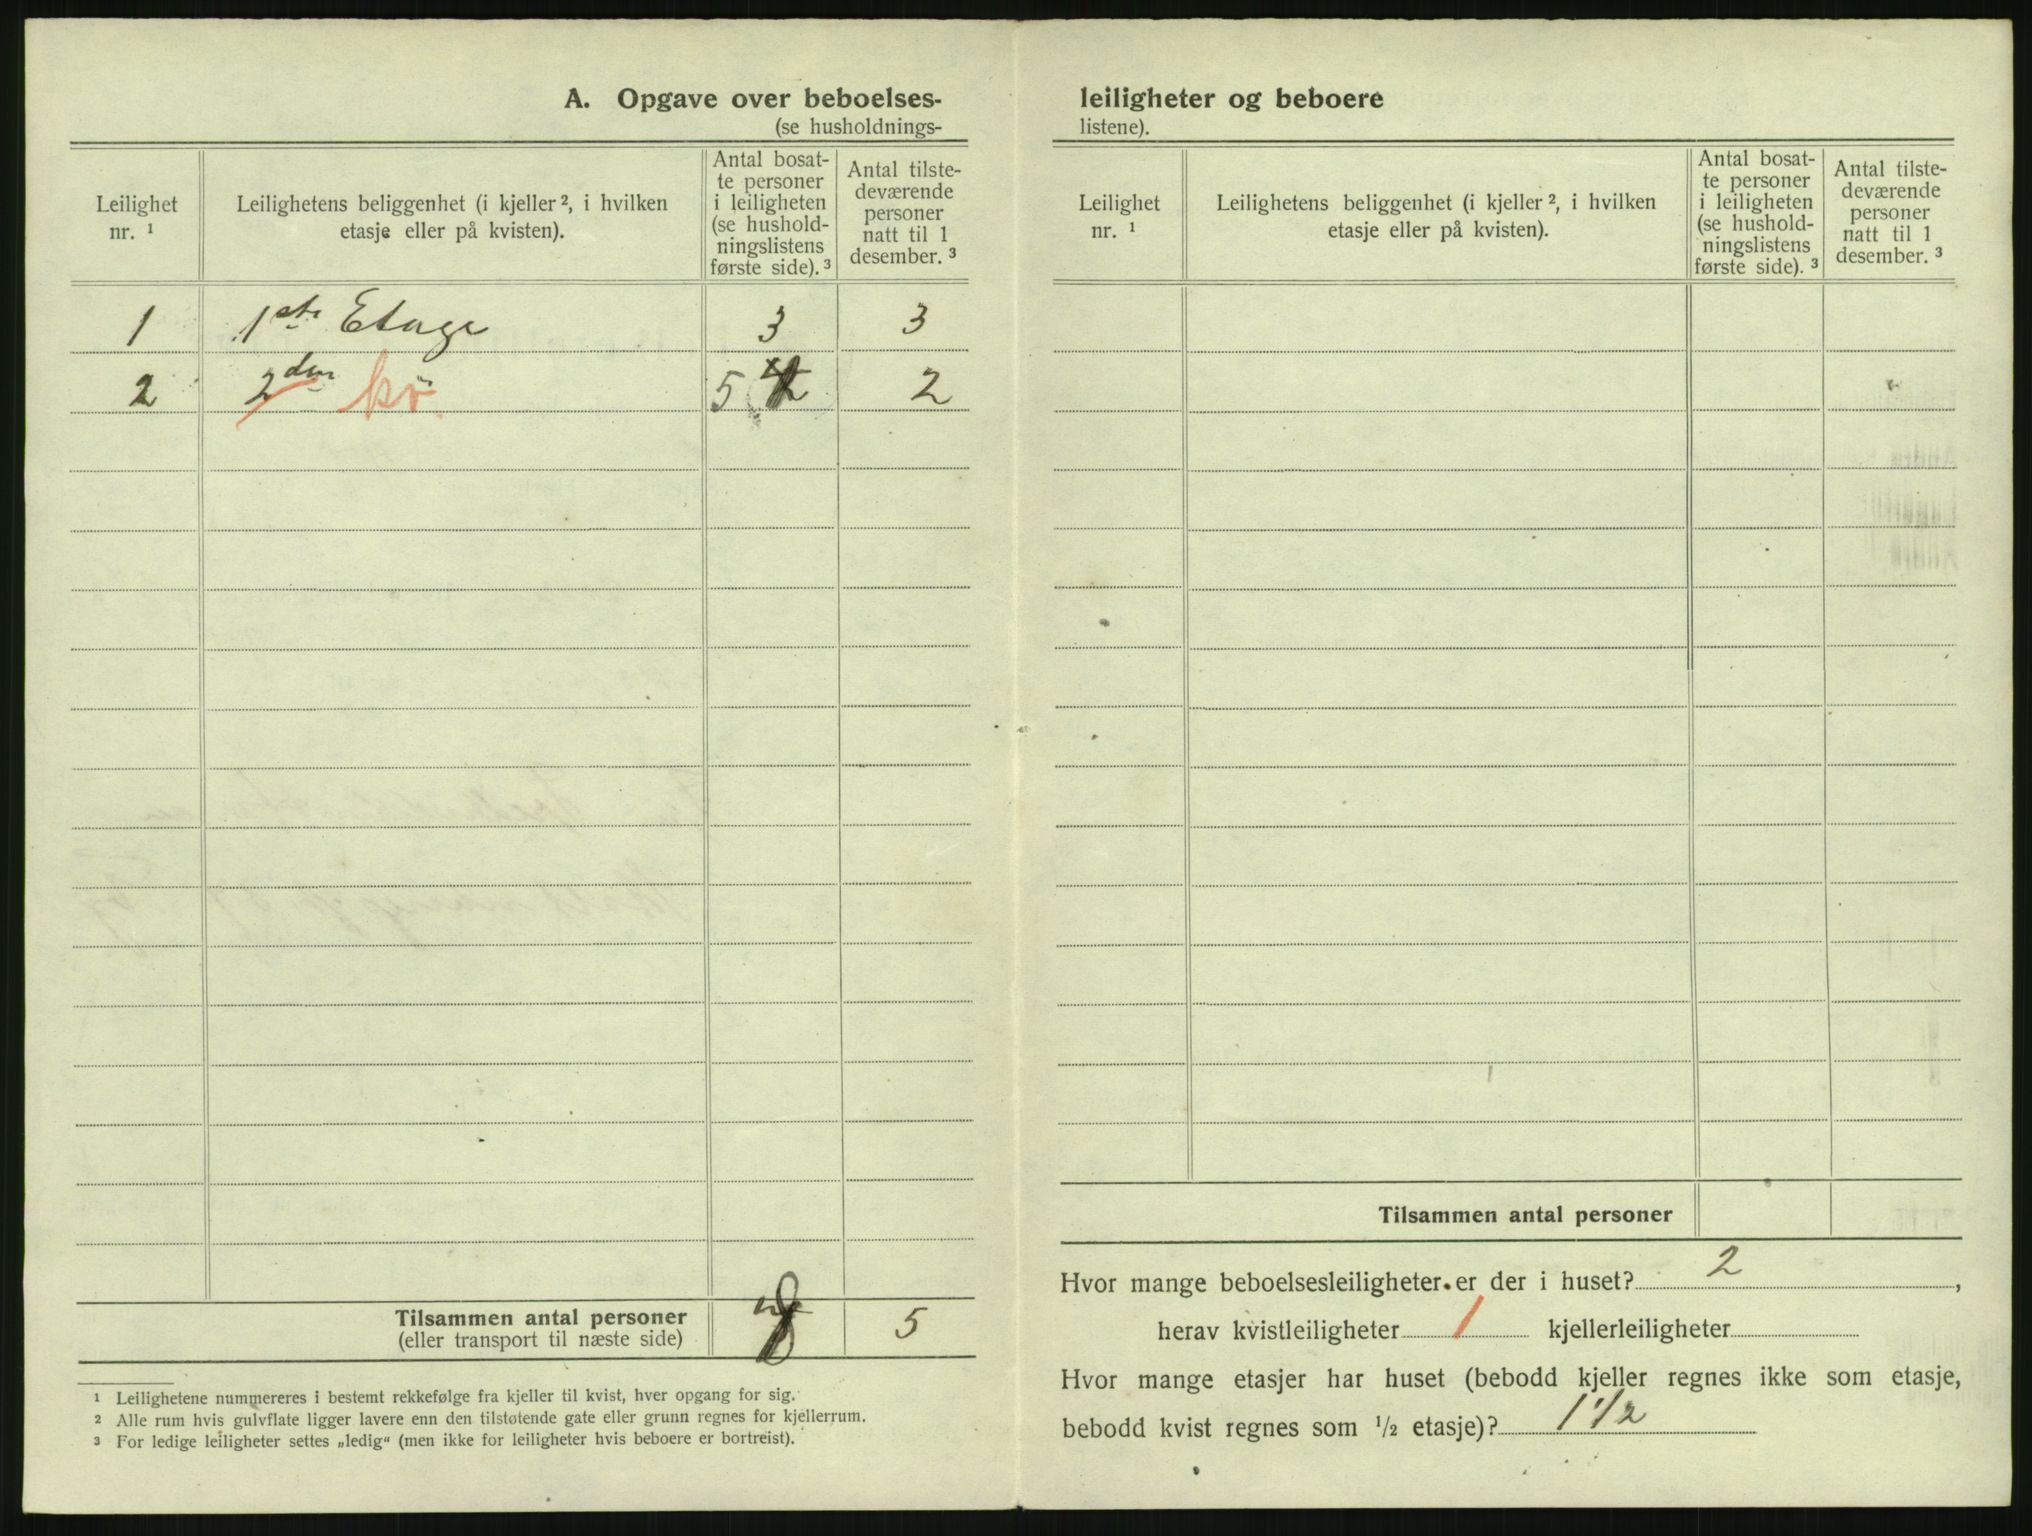 A. Opgave over beboelses-
(se husholdnings-
Leilighet nr. 1
Leilighetens beliggenhet (i kjeller 2, i hvilken etasje eller på kvisten).
Antal bosat-
te personer
i leiligheten
(se hushold-
ningslistens
første side). 3
Antal tilste-
deværende
personer
natt til 1
desember. 3
1 1ste Etage 3 3
2 2den kv. 5 2 2
Tilsammen antal personer 8 5
(eller transport til næste side)
1 Leilighetene nummereres i bestemt rekkefølge fra kjeller til kvist, hver opgang for sig.
2 Alle rum hvis gulvflate ligger lavere enn den tilstøtende gate eller grunn regnes for kjellerrum.
3 For ledige leiligheter settes „ledig“ (men ikke for leiligheter hvis beboere er bortreist).
leiligheter og beboere
listene).
Leilighet nr. 1
Leilighetens beliggenhet (i kjeller 2, i hvilken etasje eller på kvisten).
Antal bosat-
te personer
i leiligheten
(se hushold-
ningslistens
første side). 3
Antal tilste-
deværende
personer
natt til 1
desember. 3
Tilsammen antal personer
Hvor mange beboelsesleiligheter er der i huset? 2,
herav kvistleiligheter 1 kjellerleiligheter
Hvor mange etasjer har huset (bebodd kjeller regnes ikke som etasje,
bebodd kvist regnes som 1/2 etasje)? 1 1/2